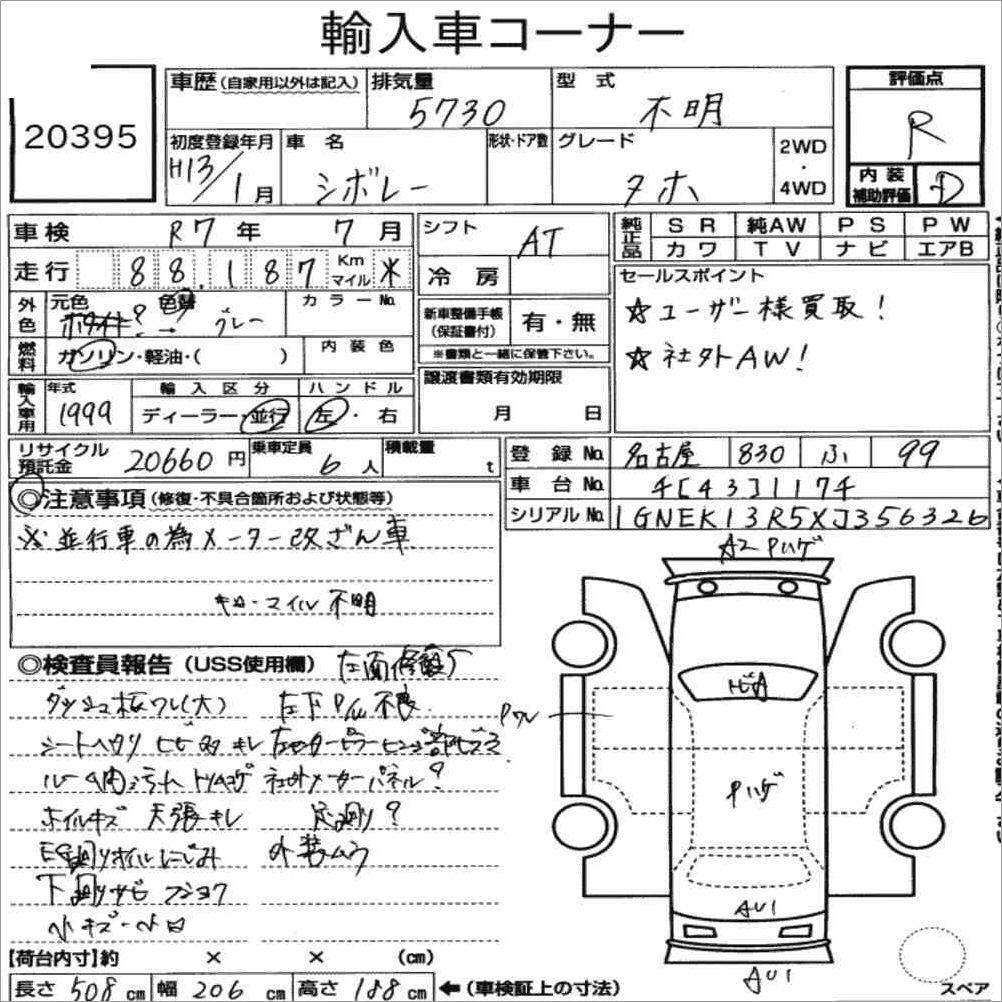 輸入車コーナー
20395
車歴(自家用以外は記入)
排気量 5730
型式 不明
評価点 R
初度登録年月 H13/1月
車名 シボレー
形状・ドア数
グレード タホ
2WD・4WD
内装補助評価 D
車検 R7年 7月
シフト AT
純正品 SR 純AW PS PW
カワ TV ナビ エアB
走行 88,187 Km マイル ※
冷房
セールスポイント
☆ユーザー様買取!
☆社外AW!
外色 元色 色替 カラーNo.
ホワイト? → グレー
新車整備手帳(保証書付) 有・無
※書類と一緒に保管下さい。
燃料 ガソリン・軽油・( )
内装色
譲渡書類有効期限
月 日
輸入車用 年式 1999
輸入区分 ディーラー・並行
ハンドル 左・右
リサイクル預託金 20660円
乗車定員 6人
積載量 t
登録No. 名古屋 830 ふ 99
車台No. チ[43]117チ
シリアルNo. 1GNEK13R5XJ356326
◎注意事項(修復・不具合箇所および状態等)
※並行車の為メーター改ざん車
キロ・マイル不明
◎検査員報告(USS使用欄)
ダッシュ板ワレ(大) 左下P/W不良
シートヘタリ
社外メーターパネル?
ホイルキズ 天張キレ
足廻り?
EG廻りオイルにじみ 外装ムラ
下廻りサビ フショク
小キズ・ヘコ
A2 Pハゲ
Pワレ
Pハゲ
AU1
AU1
【荷台内寸】約 × × (cm)
長さ 508cm 幅 206cm 高さ 188cm ←(車検証上の寸法)
スペア